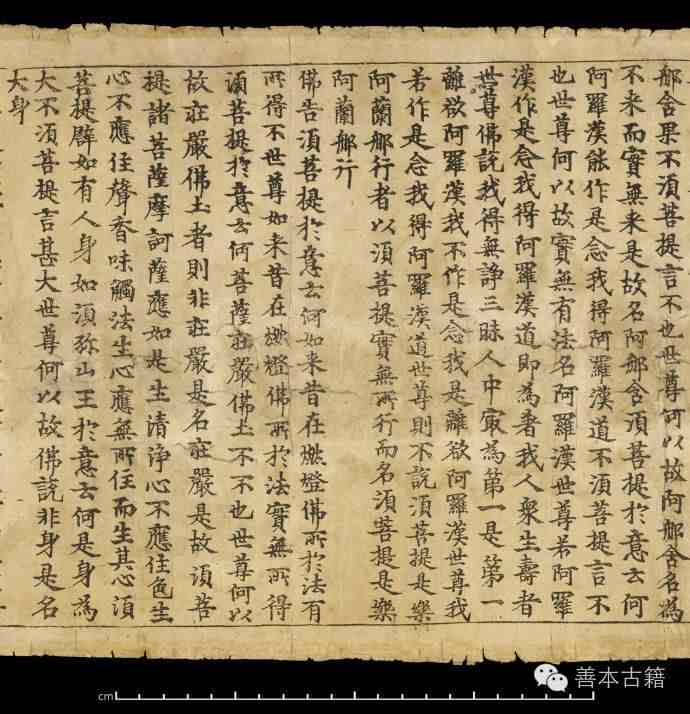 那含果不須菩提言不也世尊何以故阿那含名為
不来而實無来是故名阿那含須菩提於意云何
阿羅漢能作是念我得阿羅漢道不須菩提言不
也世尊何以故實無有法名阿羅漢世尊若阿羅
漢作是念我得阿羅漢道即為著我人衆生壽者
世尊佛說我得無諍三昧人中冣為第一是第一
離欲阿羅漢我不作是念我是離欲阿羅漢世尊我
若作是念我得阿羅漢道世尊則不說須菩提是樂
阿蘭那行者以須菩提實無所行而名須菩提是樂
阿蘭那行
佛告須菩提於意云何如来昔在燃燈佛所於法有
所得不世尊如来昔在燃燈佛所於法實無所得
須菩提於意云何菩薩莊嚴佛土不不也世尊何以
故莊嚴佛土者則非莊嚴是名莊嚴是故須菩
提諸菩薩摩訶薩應如是生清淨心不應住色生
心不應住聲香味觸法生心應無所住而生其心須
菩提譬如有人身如須弥山王於意云何是身為
大不須菩提言甚大世尊何以故佛說非身是名
大身
cm
善本古籍